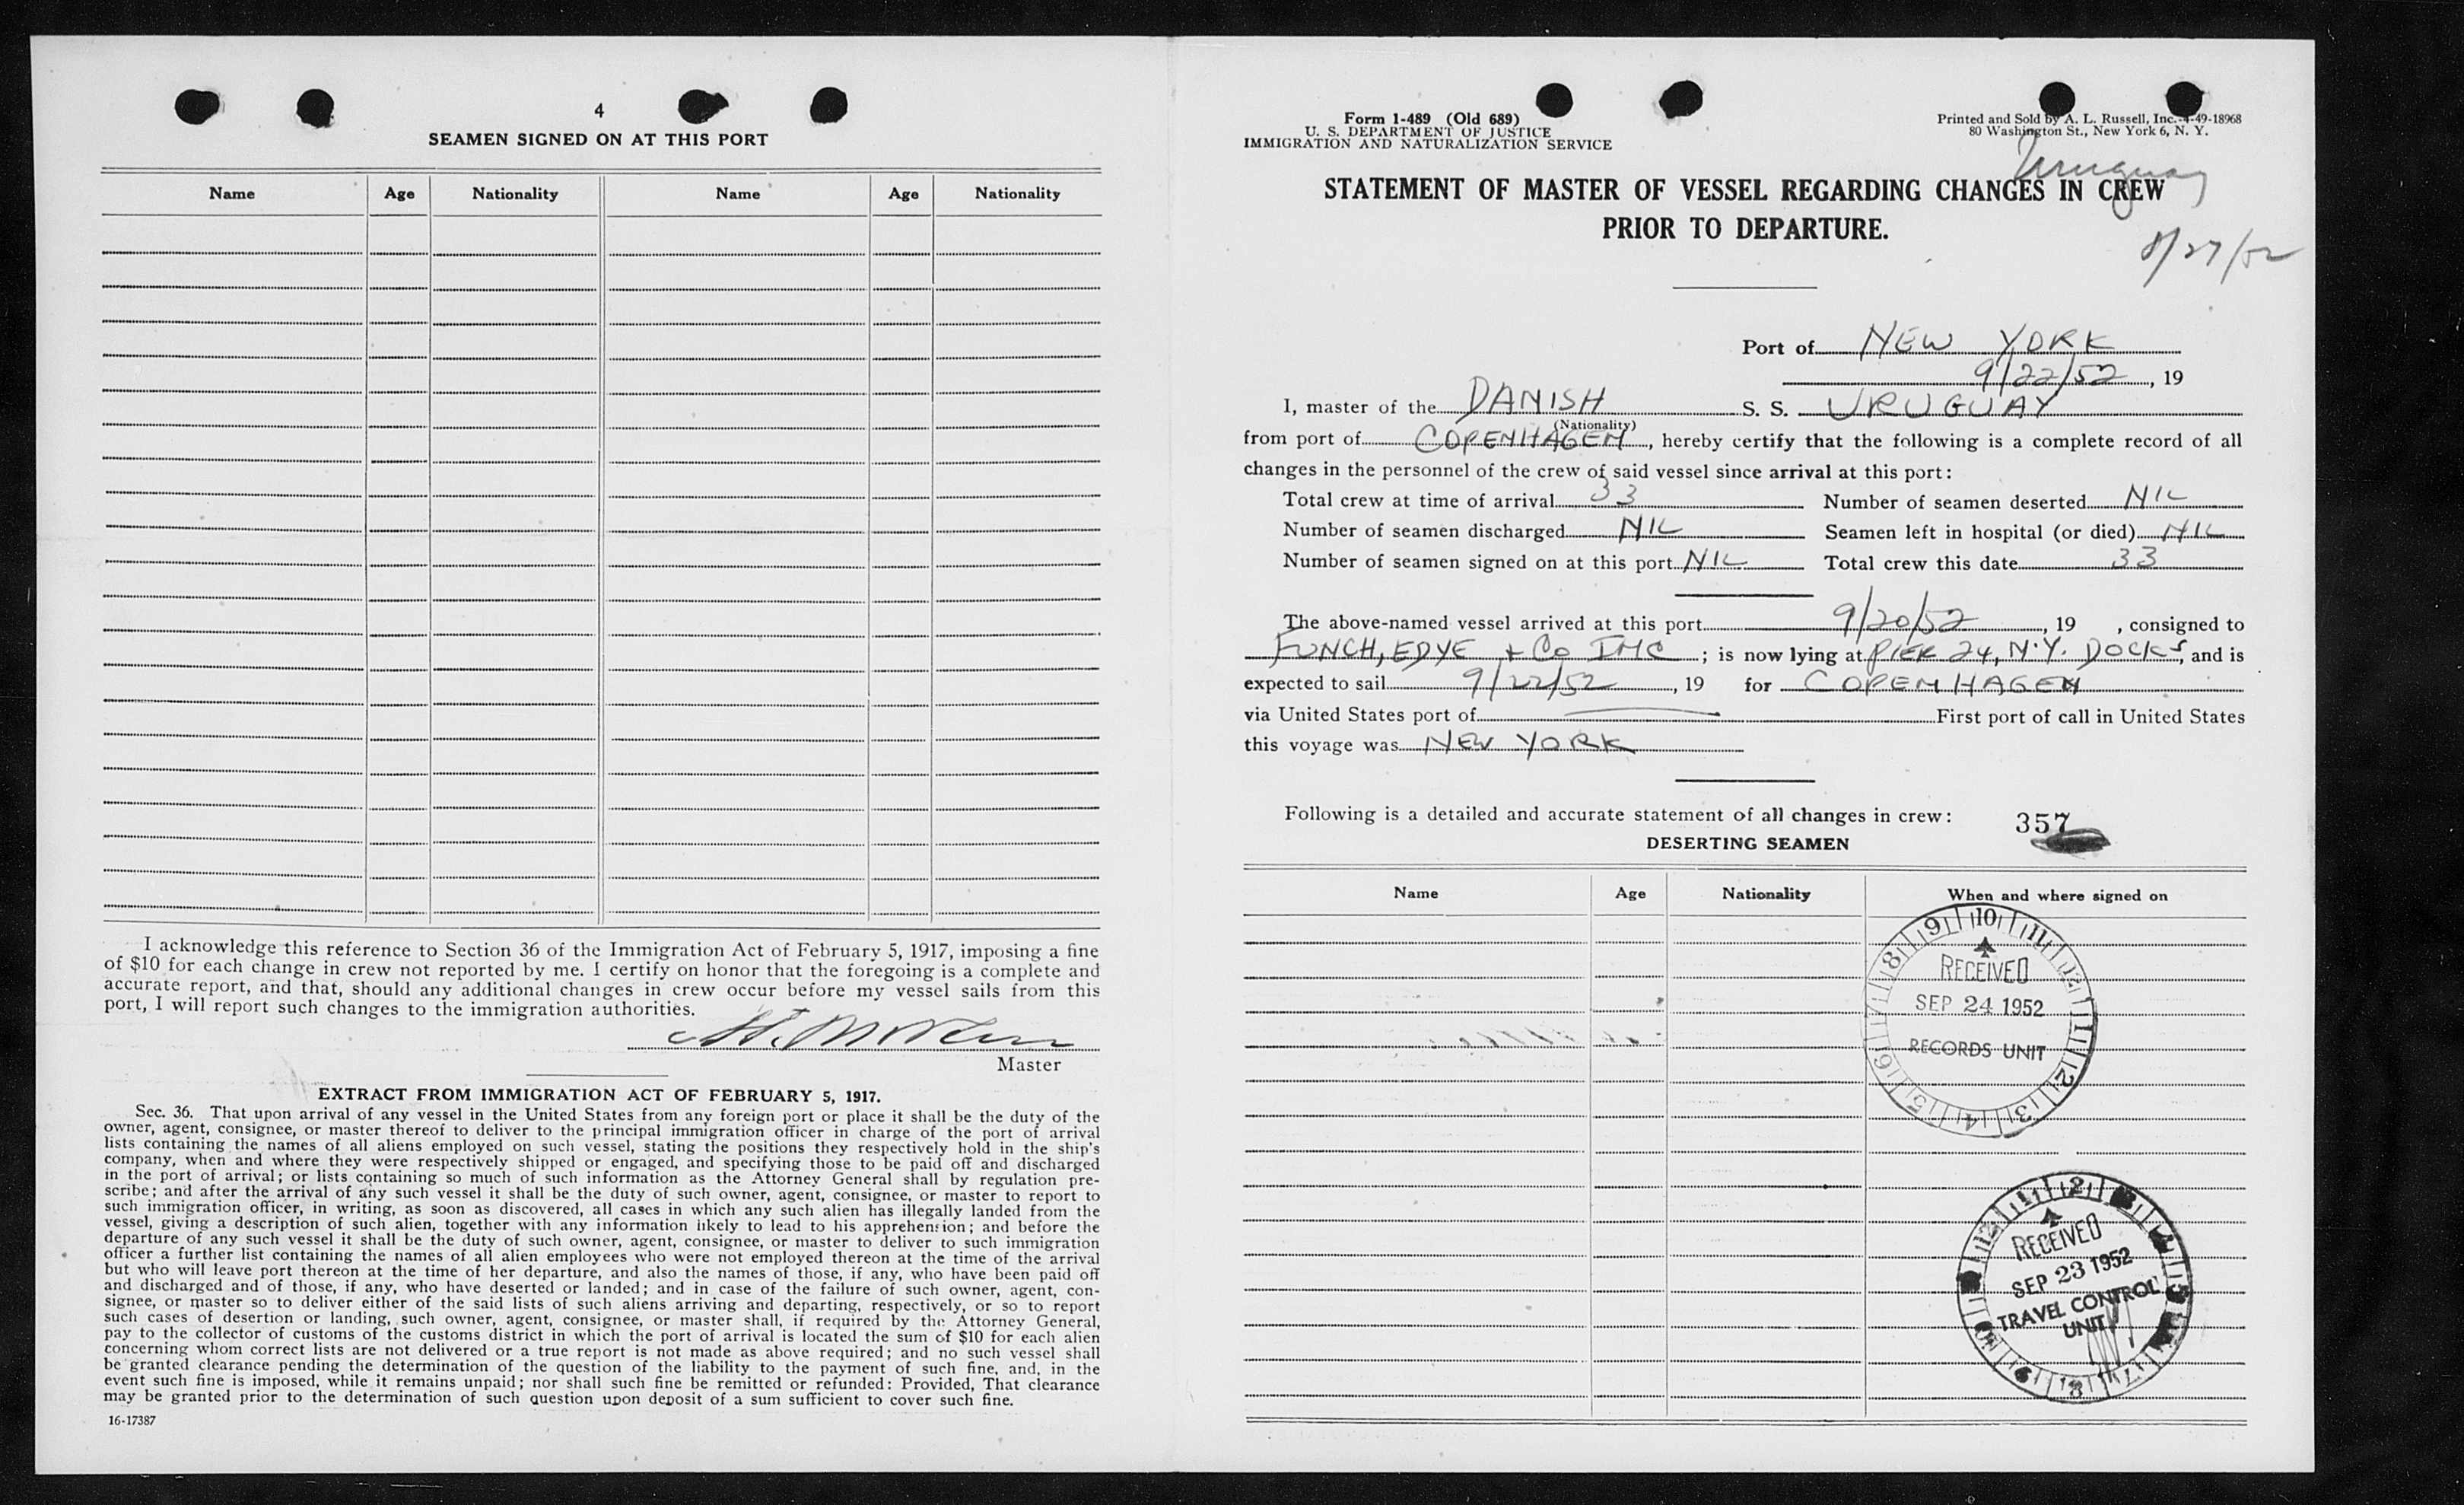 4
SEAMEN SIGNED ON AT THIS PORT
Name Age Nationality Name Age Nationality
I acknowledge this reference to Section 36 of the Immigration Act of February 5, 1917, imposing a fine
of $10 for each change in crew not reported by me. I certify on honor that the foregoing is a complete and
accurate report, and that, should any additional changes in crew occur before my vessel sails from this
port, I will report such changes to the immigration authorities.
Master
EXTRACT FROM IMMIGRATION ACT OF FEBRUARY 5, 1917.
Sec. 36. That upon arrival of any vessel in the United States from any foreign port or place it shall be the duty of the
owner, agent, consignee, or master thereof to deliver to the principal immigration officer in charge of the port of arrival
lists containing the names of all aliens employed on such vessel, stating the positions they respectively hold in the ship's
company, when and where they were respectively shipped or engaged, and specifying those to be paid off and discharged
in the port of arrival; or lists containing so much of such information as the Attorney General shall by regulation pre-
scribe; and after the arrival of any such vessel it shall be the duty of such owner, agent, consignee, or master to report to
such immigration officer, in writing, as soon as discovered, all cases in which any such alien has illegally landed from the
vessel, giving a description of such alien, together with any information likely to lead to his apprehension; and before the
departure of any such vessel it shall be the duty of such owner, agent, consignee, or master to deliver to such immigration
officer a further list containing the names of all alien employees who were not employed thereon at the time of the arrival
but who will leave port thereon at the time of her departure, and also the names of those, if any, who have been paid off
and discharged and of those, if any, who have deserted or landed; and in case of the failure of such owner, agent, con-
signee, or master so to deliver either of the said lists of such aliens arriving and departing, respectively, or so to report
such cases of desertion or landing, such owner, agent, consignee, or master shall, if required by the Attorney General,
pay to the collector of customs of the customs district in which the port of arrival is located the sum of $10 for each alien
concerning whom correct lists are not delivered or a true report is not made as above required; and no such vessel shall
be granted clearance pending the determination of the question of the liability to the payment of such fine, and, in the
event such fine is imposed, while it remains unpaid; nor shall such fine be remitted or refunded: Provided, That clearance
may be granted prior to the determination of such question upon deposit of a sum sufficient to cover such fine.
16-17387
Form 1-489 (Old 689)
U. S. DEPARTMENT OF JUSTICE
IMMIGRATION AND NATURALIZATION SERVICE
Printed and Sold by A. L. Russell, Inc. 4-49-18968
80 Washington St., New York 6, N. Y.
Uruguay
STATEMENT OF MASTER OF VESSEL REGARDING CHANGES IN CREW
PRIOR TO DEPARTURE.
8/27/52
Port of NEW YORK
9/22/52, 19
I, master of the DANISH S. S. URUGUAY
(Nationality)
from port of COPENHAGEN, hereby certify that the following is a complete record of all
changes in the personnel of the crew of said vessel since arrival at this port:
Total crew at time of arrival 33 Number of seamen deserted NIL
Number of seamen discharged NIL Seamen left in hospital (or died) NIL
Number of seamen signed on at this port NIL Total crew this date 33
The above-named vessel arrived at this port 9/20/52, 19 , consigned to
FUNCH, EDYE + Co INC; is now lying at PIER 24, N.Y. DOCKS, and is
expected to sail 9/22/52, 19 for COPENHAGEN
via United States port of First port of call in United States
this voyage was NEW YORK
Following is a detailed and accurate statement of all changes in crew: 357
DESERTING SEAMEN
Name Age Nationality When and where signed on
RECEIVED
SEP 24 1952
RECORDS UNIT
RECEIVED
SEP 23 1952
TRAVEL CONTROL
UNIT